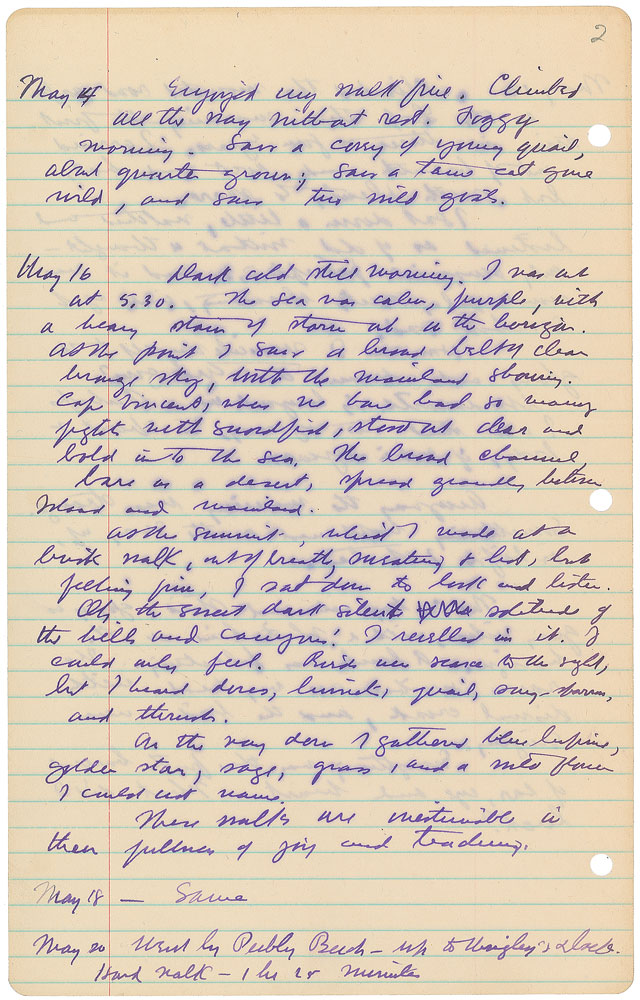 2
May 14 Enjoyed my walk fine. Climbed
all the way without rest. Foggy
morning. Saw a covey of young quail,
about quarter grown; saw a tame cat gone
wild, and saw two wild goats.
May 16 Dark cold still morning. I was out
at 5.30. The sea was calm, purple, with
a heavy storm at the horizon.
At the point I saw a broad belt of clear
bronze sky, with the mainland showing.
Cape Vincent, where we have had so many
fights with swordfish, stood out clear and
bold into the sea. The broad channel,
bare as a desert, spread grandly between
island and mainland.
At the summit, which I made at a
brisk walk, out of breath, sweating & hot, but
feeling fine, I sat down to look and listen.
Oh, the sweet dark silent solitude of
the hills and canyons! I revelled in it. I
could only feel. Birds were scarce to the sight,
but I heard doves, linnets, quail, song-sparrows,
and thrush.
On the way down I gathered blue lupine,
golden star, sage, grass, and a wild flower
I could not name.
These walks are inestimable in
their fullness of joy and teaching.
May 18 — Same
May 20 Went by Pebbly Beach – up to Wrigley's &
Hard walk – 1 hr 25 minutes